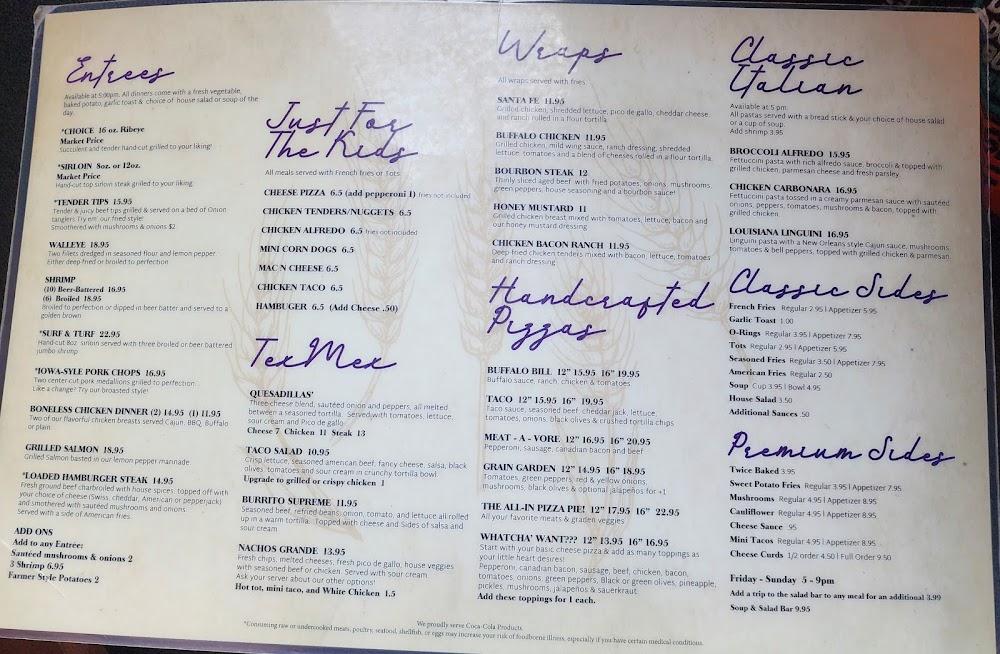 Entrees
Available at 5:00pm. All dinners come with a fresh vegetable,
baked potato, garlic toast & choice of house salad or soup of the
day.
*CHOICE 16 oz. Ribeye
Market Price
Succulent and tender hand-cut grilled to your liking!
*SIRLOIN 8oz. or 12oz.
Market Price
Hand-cut top sirloin steak grilled to your liking.
*TENDER TIPS 15.95
Tender & juicy beef tips grilled & served on a bed of Onion
tanglers Try em' our fried style!
Smoothered with mushrooms & onions $2
WALLEYE 18.95
Two fillets dredged in seasoned flour and lemon pepper.
Either deep fried or broiled to perfection
SHRIMP
(10) Beer-Battered 16.95
(6) Broiled 18.95
Broiled to perfection or dipped in beer batter and served to a
golden brown
*SURF & TURF 22.95
Hand-cut 8oz sirloin served with three broiled or beer battered
jumbo shrimp
*IOWA-SYLE PORK CHOPS 16.95
Two center-cut pork medallions grilled to perfection.
Like a change? Try our broasted style!
BONELESS CHICKEN DINNER (2) 14.95 (1) 11.95
Two of our flavorful chicken breasts served Cajun, BBQ, Buffalo
or plain.
GRILLED SALMON 18.95
Grilled Salmon basted in our lemon pepper marinade
*LOADED HAMBURGER STEAK 14.95
Fresh ground beef charbroiled with house spices, topped off with
your choice of cheese (Swiss, cheddar, American or pepperjack)
and smothered with sautéed mushrooms and onions
Served with a side of American fries.
ADD ONS
Add to any Entrée:
Sautéed mushrooms & onions 2
3 Shrimp 6.95
Farmer Style Potatoes 2
Just For
The Kids
All meals served with French fries or Tots
CHEESE PIZZA 6.5 (add pepperoni 1) fries not included
CHICKEN TENDERS/NUGGETS 6.5
CHICKEN ALFREDO 6.5 fries not included
MINI CORN DOGS 6.5
MAC N CHEESE 6.5
CHICKEN TACO 6.5
HAMBUGER 6.5 (Add Cheese .50)
TexMex
QUESADILLAS'
Three-cheese blend, sautéed onion and peppers, all melted
between a seasoned tortilla. Served with tomatoes, lettuce,
sour cream and Pico de gallo
Cheese 7 Chicken 11 Steak 13
TACO SALAD 10.95
Crisp lettuce, seasoned american beef, fancy cheese, salsa, black
olives, tomatoes and sour cream in crunchy tortilla bowl.
Upgrade to grilled or crispy chicken 1
BURRITO SUPREME 11.95
Seasoned beef, refried beans, onion, tomato, and lettuce all rolled
up in a warm tortilla. Topped with cheese and Sides of salsa and
sour cream
NACHOS GRANDE 13.95
Fresh chips, melted cheeses, fresh pico de gallo, house veggies
with seasoned beef or chicken. Served with sour cream.
Ask your server about our other options!
Hot tot, mini taco, and White Chicken 1.5
Wraps
All wraps served with fries.
SANTA FE 11.95
Grilled chicken, shredded lettuce, pico de gallo, cheddar cheese
and ranch rolled in a flour tortilla
BUFFALO CHICKEN 11.95
Grilled chicken, mild wing sauce, ranch dressing, shredded
lettuce, tomatoes and a blend of cheeses rolled in a flour tortilla
BOURBON STEAK 12
Thinly sliced aged beef, with fried potatoes, onions, mushrooms,
green peppers, house seasoning and a bourbon sauce!
HONEY MUSTARD 11
Grilled chicken breast mixed with tomatoes, lettuce, bacon and
our honey mustard dressing
CHICKEN BACON RANCH 11.95
Deep fried chicken tenders mixed with bacon, lettuce, tomatoes
and ranch dressing
Handcrafted
Pizzas
BUFFALO BILL 12" 15.95 16" 19.95
Buffalo sauce, ranch, chicken & tomatoes
TACO 12" 15.95 16" 19.95
Taco sauce, seasoned beef, cheddar jack, lettuce,
tomatoes, onions, black olives & crushed tortilla chips
MEAT - A - VORE 12" 16.95 16" 20.95
Pepperoni, sausage, canadian bacon and beef
GRAIN GARDEN 12" 14.95 16" 18.95
Tomatoes, green peppers, red & yellow onions,
mushrooms, black olives & optional jalapeños for +1
THE ALL-IN PIZZA PIE! 12" 17.95 16" 22.95
All your favorite meats & graden veggies
WHATCHA' WANT??? 12" 13.95 16" 16.95
Start with your basic cheese pizza & add as many toppings as
your little heart desires!
Pepperoni, canadian bacon, sausage, beef, chicken, bacon,
tomatoes, onions, green peppers, Black or green olives, pineapple,
pickles, mushrooms, jalapeños & sauerkraut.
Add these toppings for 1 each.
Classic
Italian
Available at 5 pm.
All pastas served with a bread stick & your choice of house salad
or a cup of soup.
Add shrimp 3.95
BROCCOLI ALFREDO 15.95
Fettuccini pasta with rich alfredo sauce, broccoli & topped with
grilled chicken, parmesan cheese and fresh parsley
CHICKEN CARBONARA 16.95
Fettuccini pasta tossed in a creamy parmesan sauce with sautéed
onions, peppers, tomatoes, mushrooms & bacon, topped with
grilled chicken.
LOUISIANA LINGUINI 16.95
Linguini pasta with a New Orleans style Cajun sauce, mushrooms,
tomatoes & bell peppers, topped with grilled chicken & parmesan.
Classic Sides
French Fries Regular 2.95 | Appetizer 5.95
Garlic Toast 1.00
O-Rings Regular 3.95 | Appetizer 7.95
Tots Regular 2.95 | Appetizer 5.95
Seasoned Fries Regular 3.50 | Appetizer 7.95
American Fries Regular 2.50
Soup Cup 3.95 | Bowl 4.95
House Salad 3.50
Additional Sauces .50
Premium Sides
Twice Baked 3.95
Sweet Potato Fries Regular 3.95 | Appetizer 7.95
Mushrooms Regular 4.95 | Appetizer 8.95
Cauliflower Regular 4.95 | Appetizer 8.95
Cheese Sauce .95
Mini Tacos Regular 4.95 | Appetizer 8.95
Cheese Curds 1/2 order 4.50 | Full Order 9.50
Friday - Sunday 5 - 9pm
Add a trip to the salad bar to any meal for an additional 3.99
Soup & Salad Bar 9.95
We proudly serve Coca-Cola Products.
*Consuming raw or undercooked meats, poultry, seafood, shellfish, or eggs may increase your risk of foodborne illness, especially if you have certain medical conditions.